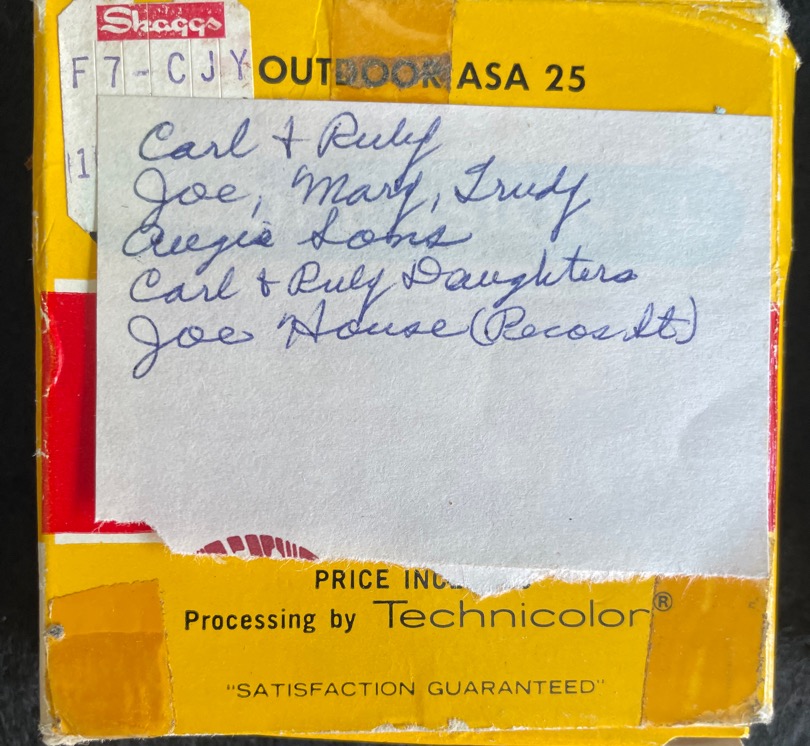 Skaggs
F7-CJY
OUTDOOR ASA 25
1
Carl & Ruby
Joe, Mary, Trudy
Augie Sons
Carl & Ruby Daughters
Joe House (Pecos St)
PRICE
Processing by Technicolor®
"SATISFACTION GUARANTEED"